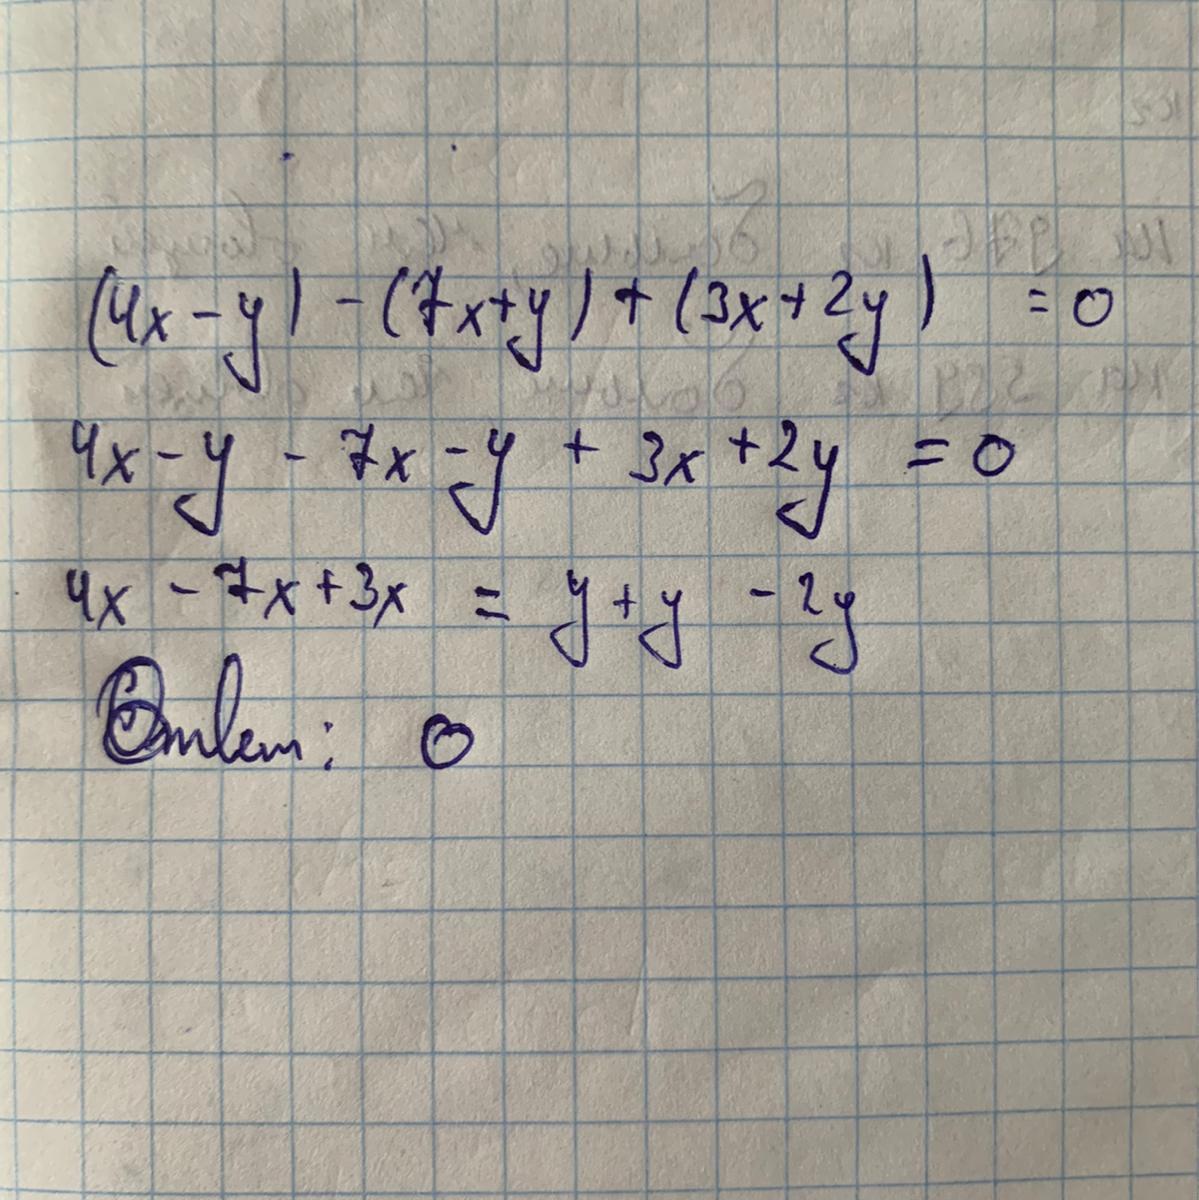 (4x-y) - (7x+y) + (3x+2y) = 0
4x-y - 7x-y + 3x+2y = 0
4x - 7x+3x = y+y - 2y
Ответ: 0